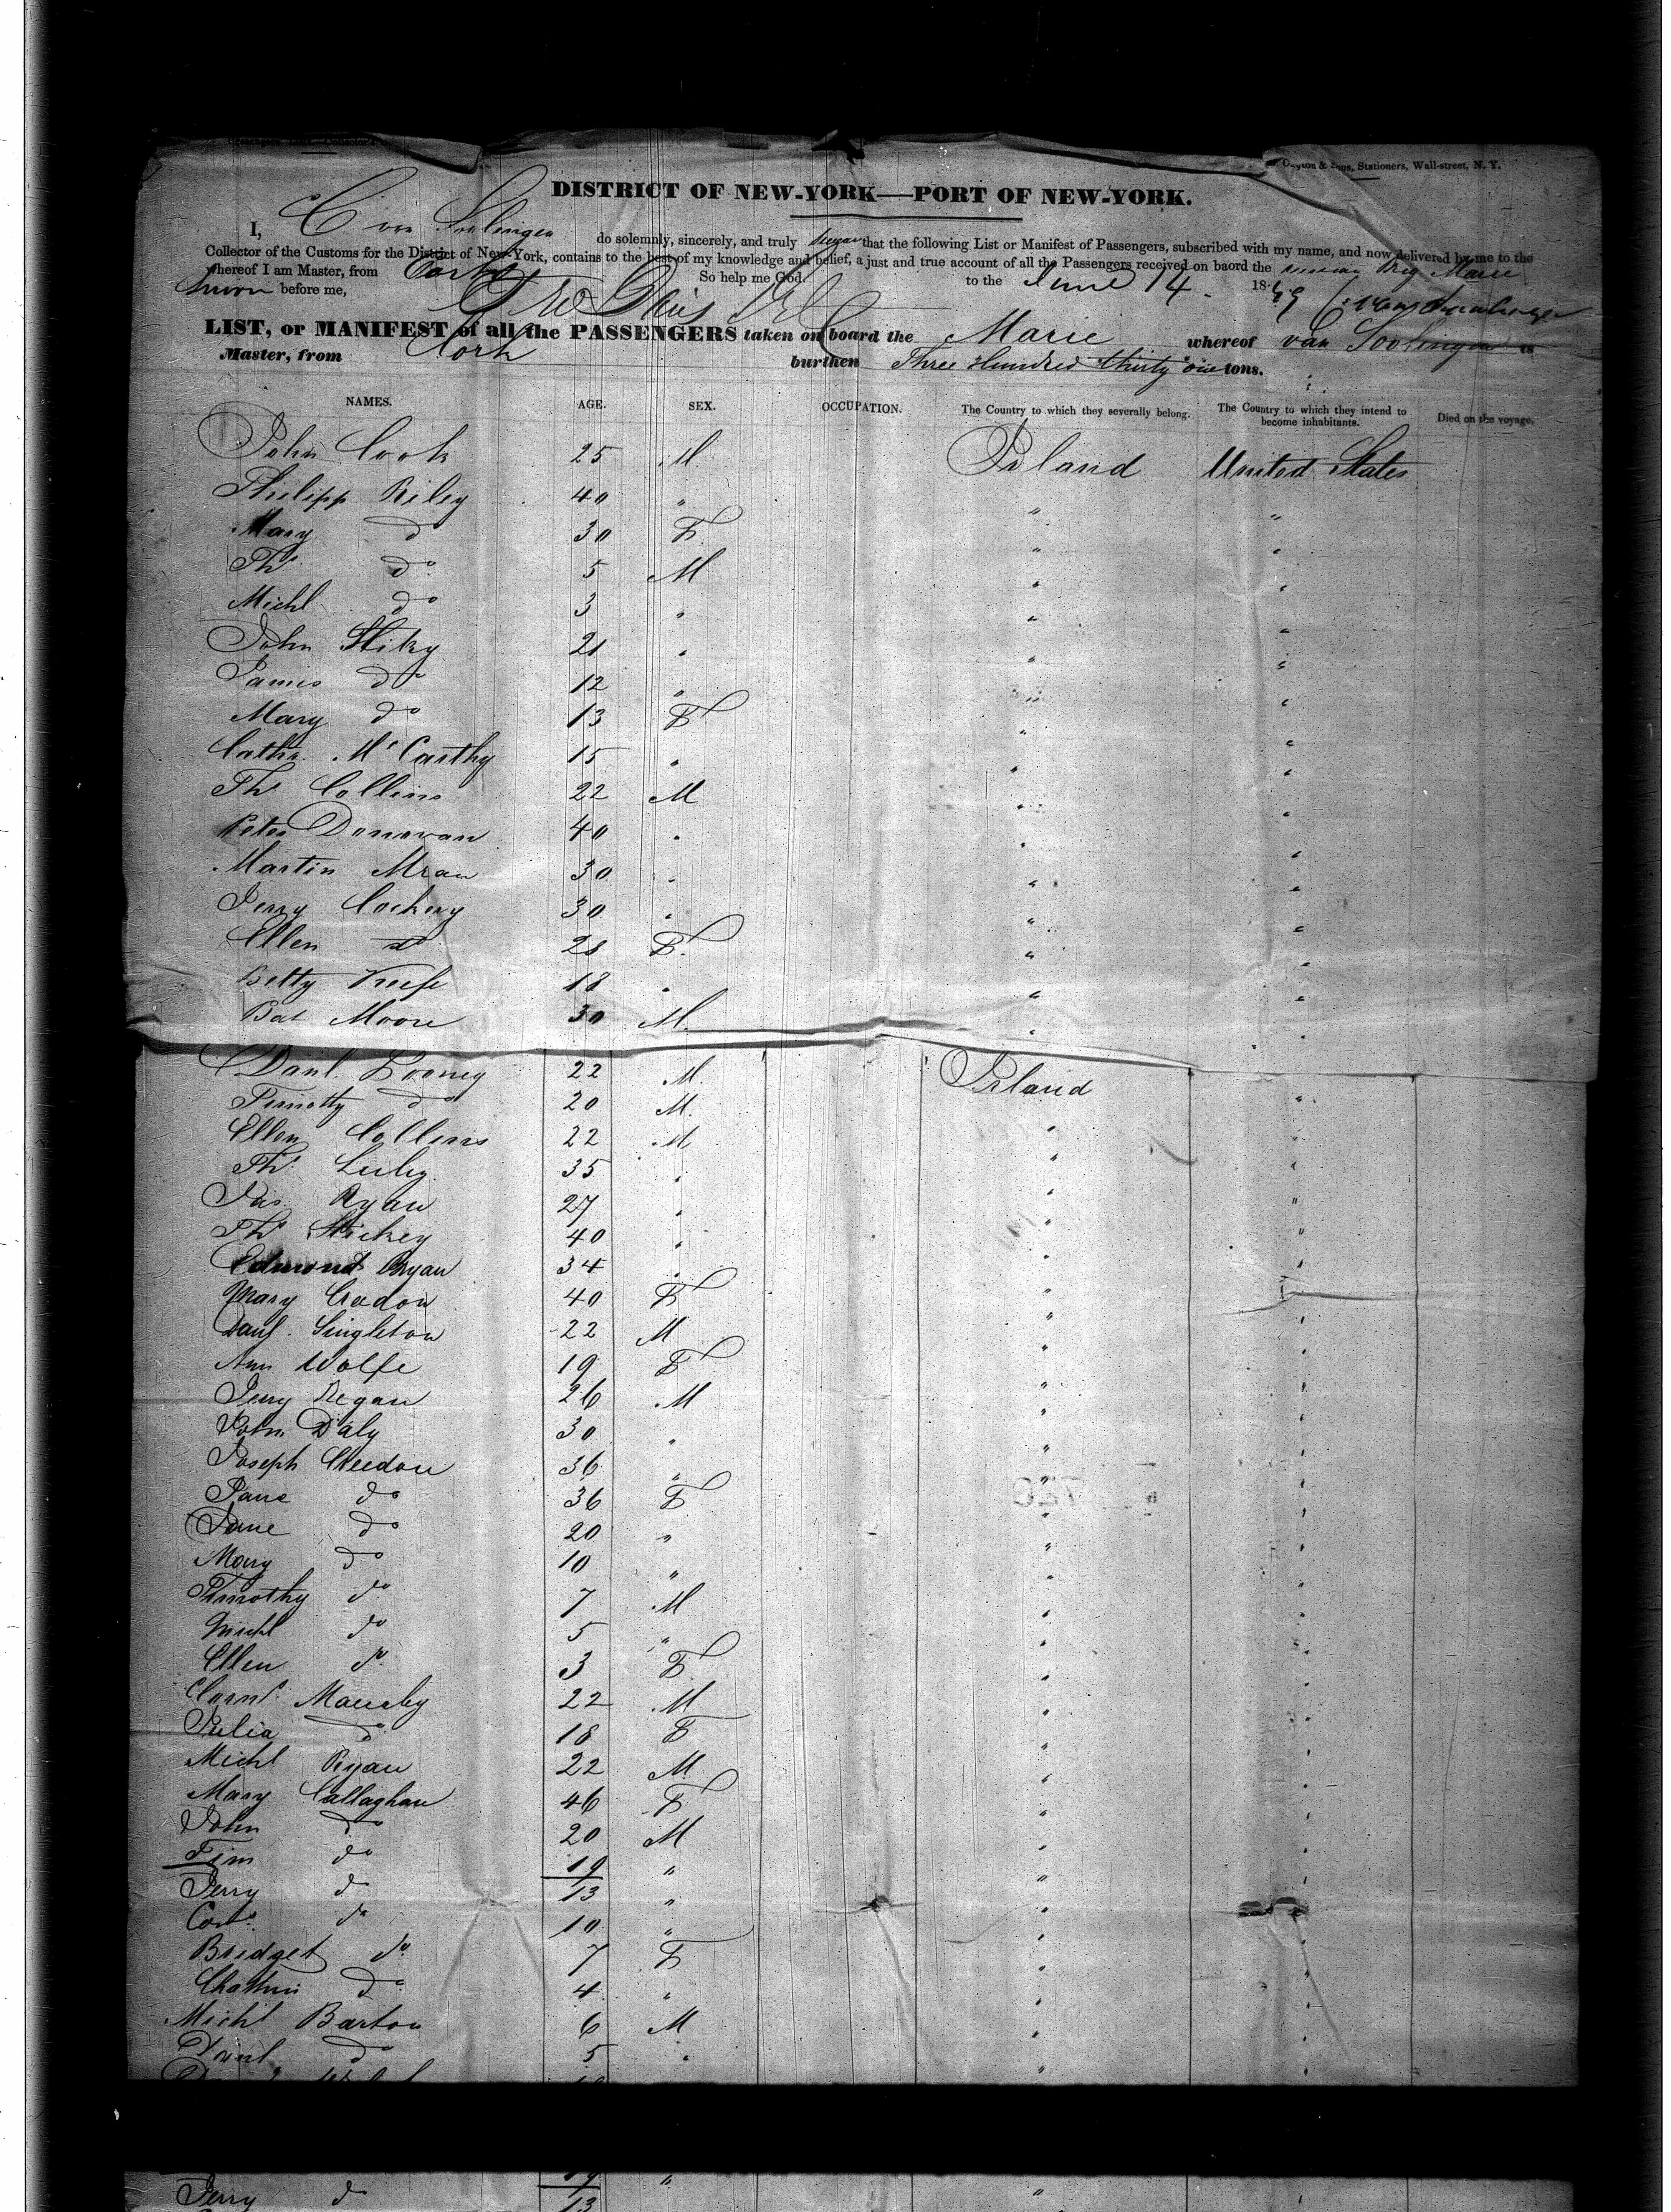 & Sons, Stationers, Wall-street, N. Y.
DISTRICT OF NEW-YORK—PORT OF NEW-YORK.
I, C van Soolingen do solemnly, sincerely, and truly swear that the following List or Manifest of Passengers, subscribed with my name, and now delivered by me to the
Collector of the Customs for the District of New-York, contains to the best of my knowledge and belief, a just and true account of all the Passengers received on baord the Brig Marie
whereof I am Master, from Cork So help me God.
Sworn before me, to the June 14 1849
LIST, or MANIFEST of all the PASSENGERS taken on board the Marie whereof van Soolingen is
Master, from Cork burthen Three Hundred thirty one tons.
NAMES. AGE. SEX. OCCUPATION. The Country to which they severally belong. The Country to which they intend to become inhabitants. Died on the voyage.
John Cook 25 M Irland United States
Philipp Riley 40 " " "
Mary do 30 F " "
Ths do 5 M " "
Michl do 3 " " "
John 21 " " "
James do 12 " " "
Mary do 13 F " "
Cathr. McCarthy 15 " " "
Ths Collins 22 M " "
Peter Donovan 40 " " "
Martin 30 " " "
Jerry 30 " " "
Ellen do 28 F. " "
Betty Keefe 18 " " "
Bat Moore 30 M. " "
Danl. Looney 22 M. Irland "
Timotty do 20 M. " "
Ellen Collins 22 M " "
Ths 35 " " "
Jas. Ryan 27 " " "
Ths 40 " " "
Edmond Ryan 34 " " "
Mary Creedon 40 F " "
Danl. Singleton 22 M " "
Ann Wolfe 19 F " "
Jerry Regan 26 M " "
John Daly 30 " " "
Joseph Creedon 36 " " "
Jane do 36 F " "
Jane do 20 " " "
Mary do 10 " " "
Timothy do 7 M " "
Michl do 5 " " "
Ellen do 3 F " "
22 M " "
Julia do 18 F " "
Michl Ryan 22 M " "
Mary Callaghan 46 F " "
John do 20 M " "
Tim do 19 " " "
Jerry do 13 " " "
Cors. do 10 " " "
Bridget do 7 F " "
do 4 " " "
Michl Barton 6 M " "
Danl do 5 " " "
19 "
Jerry do 13 "